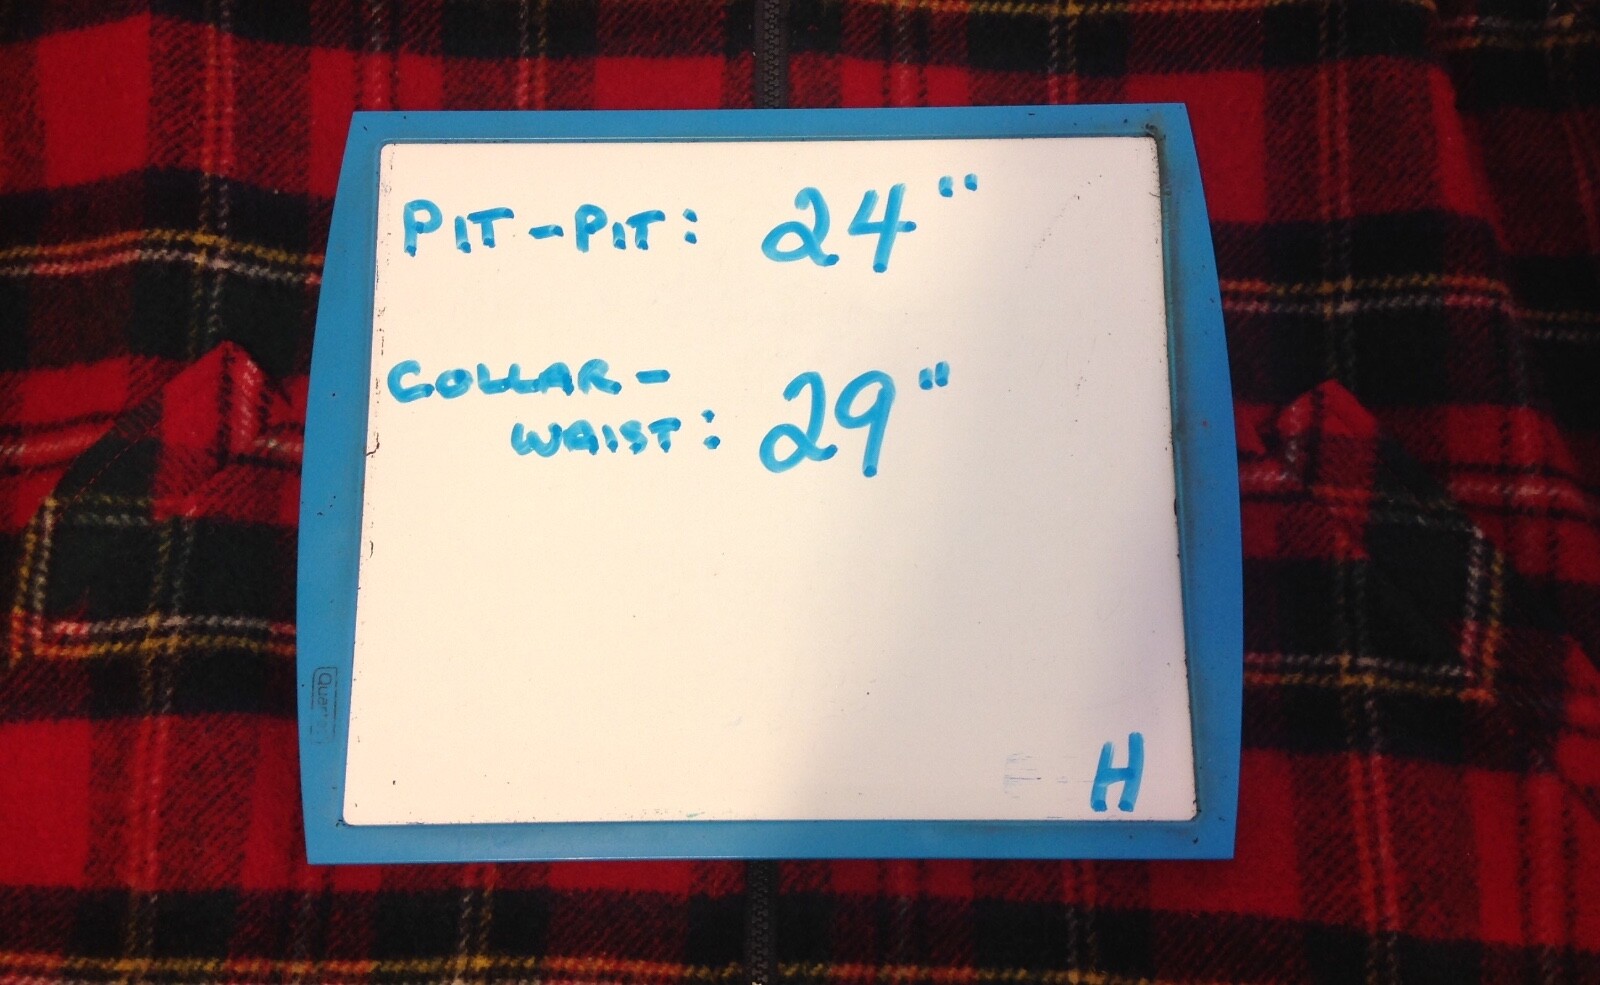 PIT-PIT: 24"
COLLAR-
WAIST: 29"
H